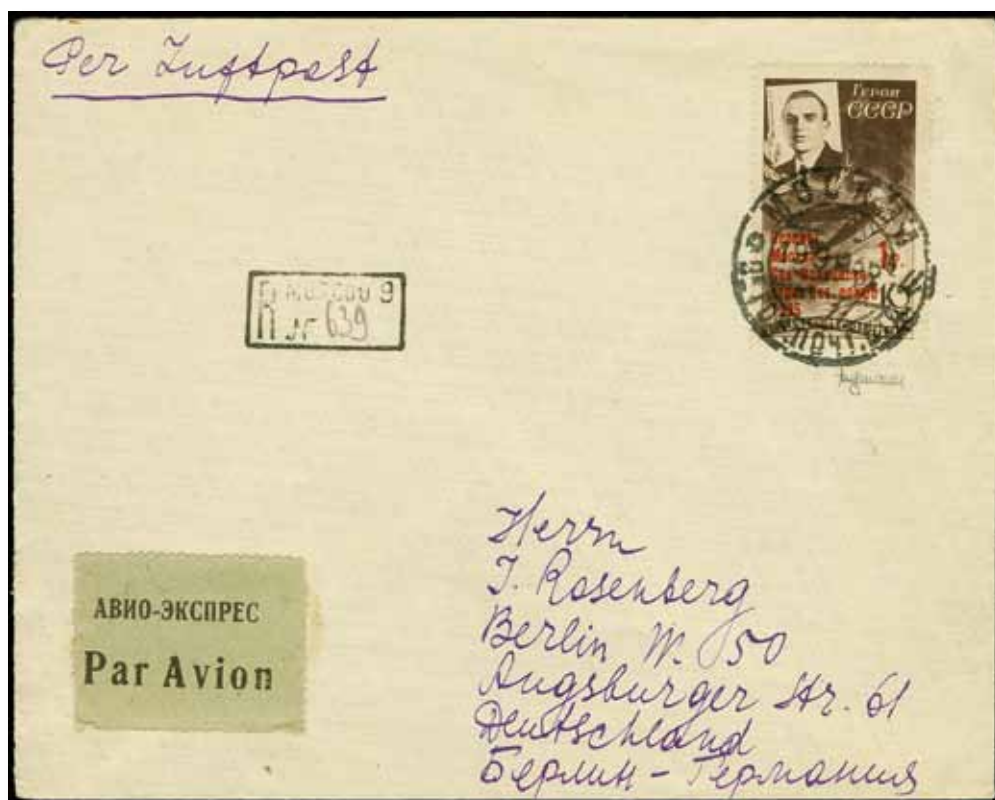 Per Luftpost
Герои
СССР
МОСКВА
1р.
MOSCOU 9
П № 639
АВИО-ЭКСПРЕС
Par Avion
Herrn
J. Rosenberg
Berlin W. 50
Augsburger Str. 61
Deutschland
Берлин - Германия